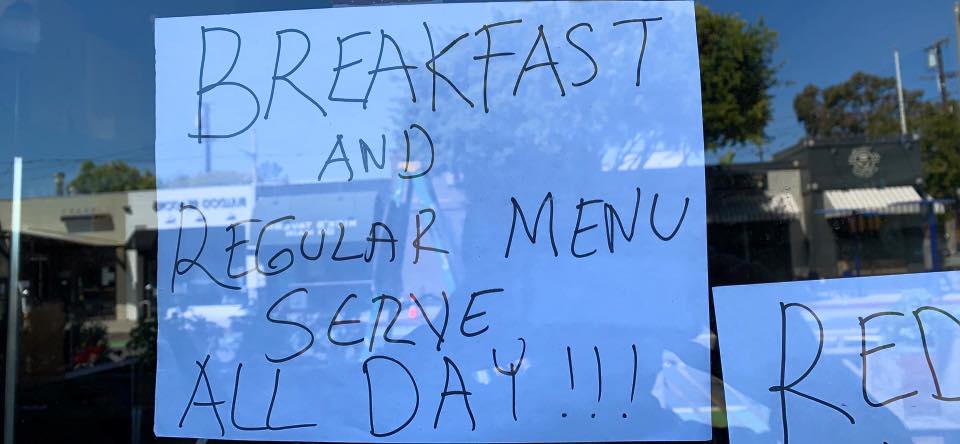 BREAKFAST
AND
REGULAR MENU
SERVE
ALL DAY !!!
RED